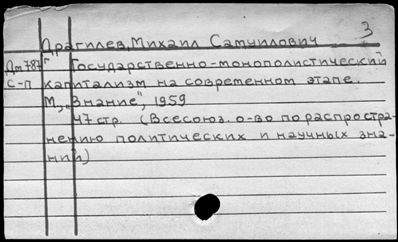 Драгилев, Михаил Самуилович 3
Дм787 Государственно-монополистический
С-П капитализм на современном этапе.
М, „Знание", 1959
47 стр. (Всесоюз. о-во по распростра-
нению политических и научных зна-
ний)